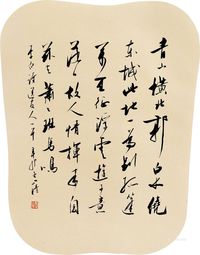 青山橫北郭白水繞
東城此地一為別孤蓬
萬里征浮雲遊子意
落日故人情揮手自
茲去蕭蕭班馬鳴
李白詩送友人一首